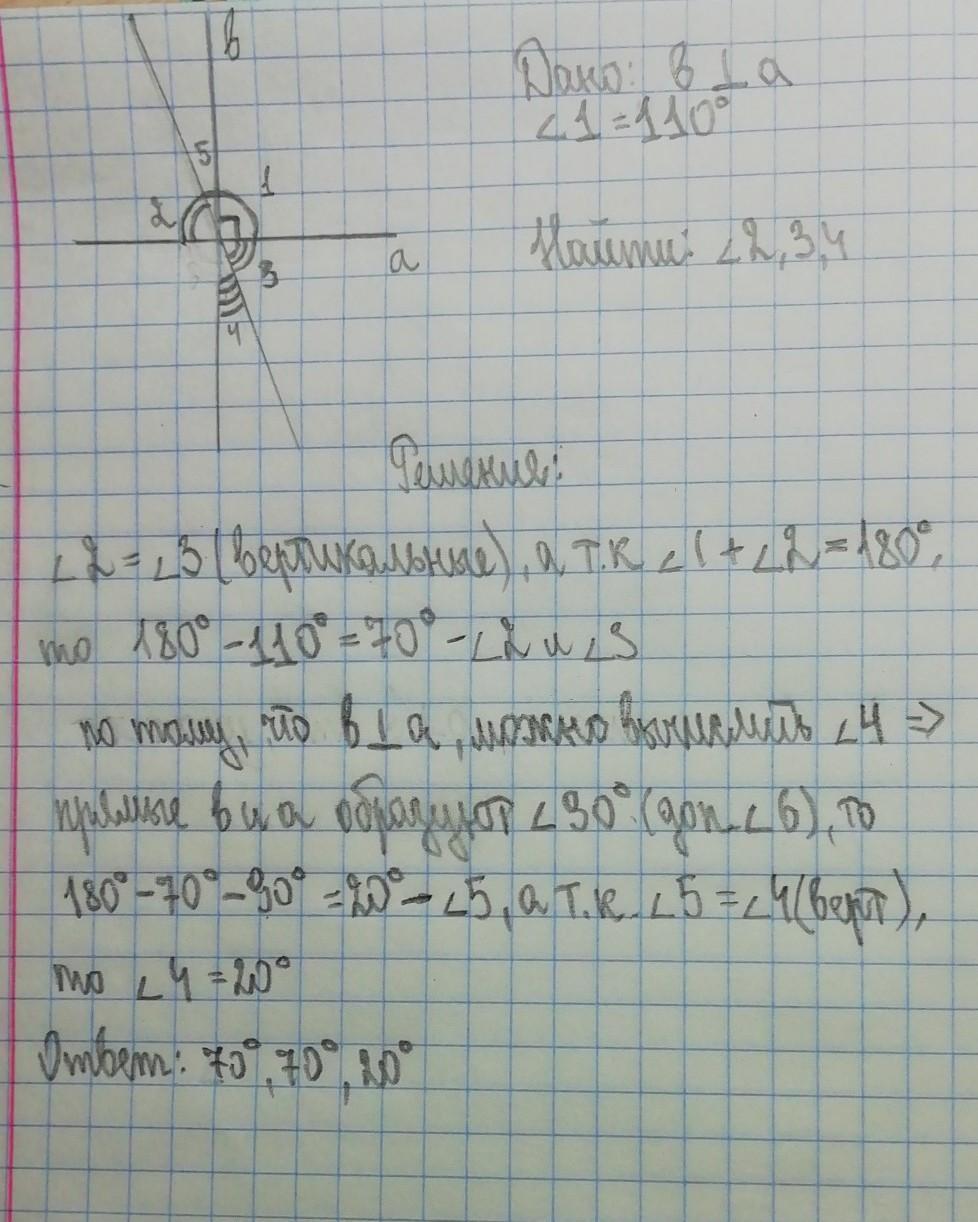 в
5
1
2
3
a
4
Дано: в ⊥ a
∠1 = 110°
Найти: ∠2,3,4
Решение:
∠2 = ∠3 (вертикальные), а т.к ∠1 + ∠2 = 180°,
то 180° - 110° = 70° - ∠2 и ∠3
по тому, что в ⊥ a, можно вычислить ∠4 ⇒
прямые в и а образуют ∠90° (доп ∠6), то
180° - 70° - 90° = 20° - ∠5, а т.к. ∠5 = ∠4 (верт),
то ∠4 = 20°
Ответ: 70°, 70°, 20°